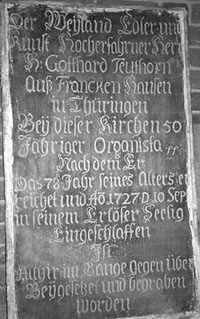 Der Weyland Edler und
Kunst Hocherfahrner Herr
H: Gotthard Teuthorn
Auß Francken Hausen
in Thüringen
Bey dieser Kirchen 50
Jähriger Organista
Nach dem Er
Das 78 Jahr seines Alters er
reichet und Aõ 1727 D 10 Sep
in seinem Erlöser Seelig
Eingeschlaffen
Ist
Allhir im Gange gegen über
Beygesetzet und begraben
worden